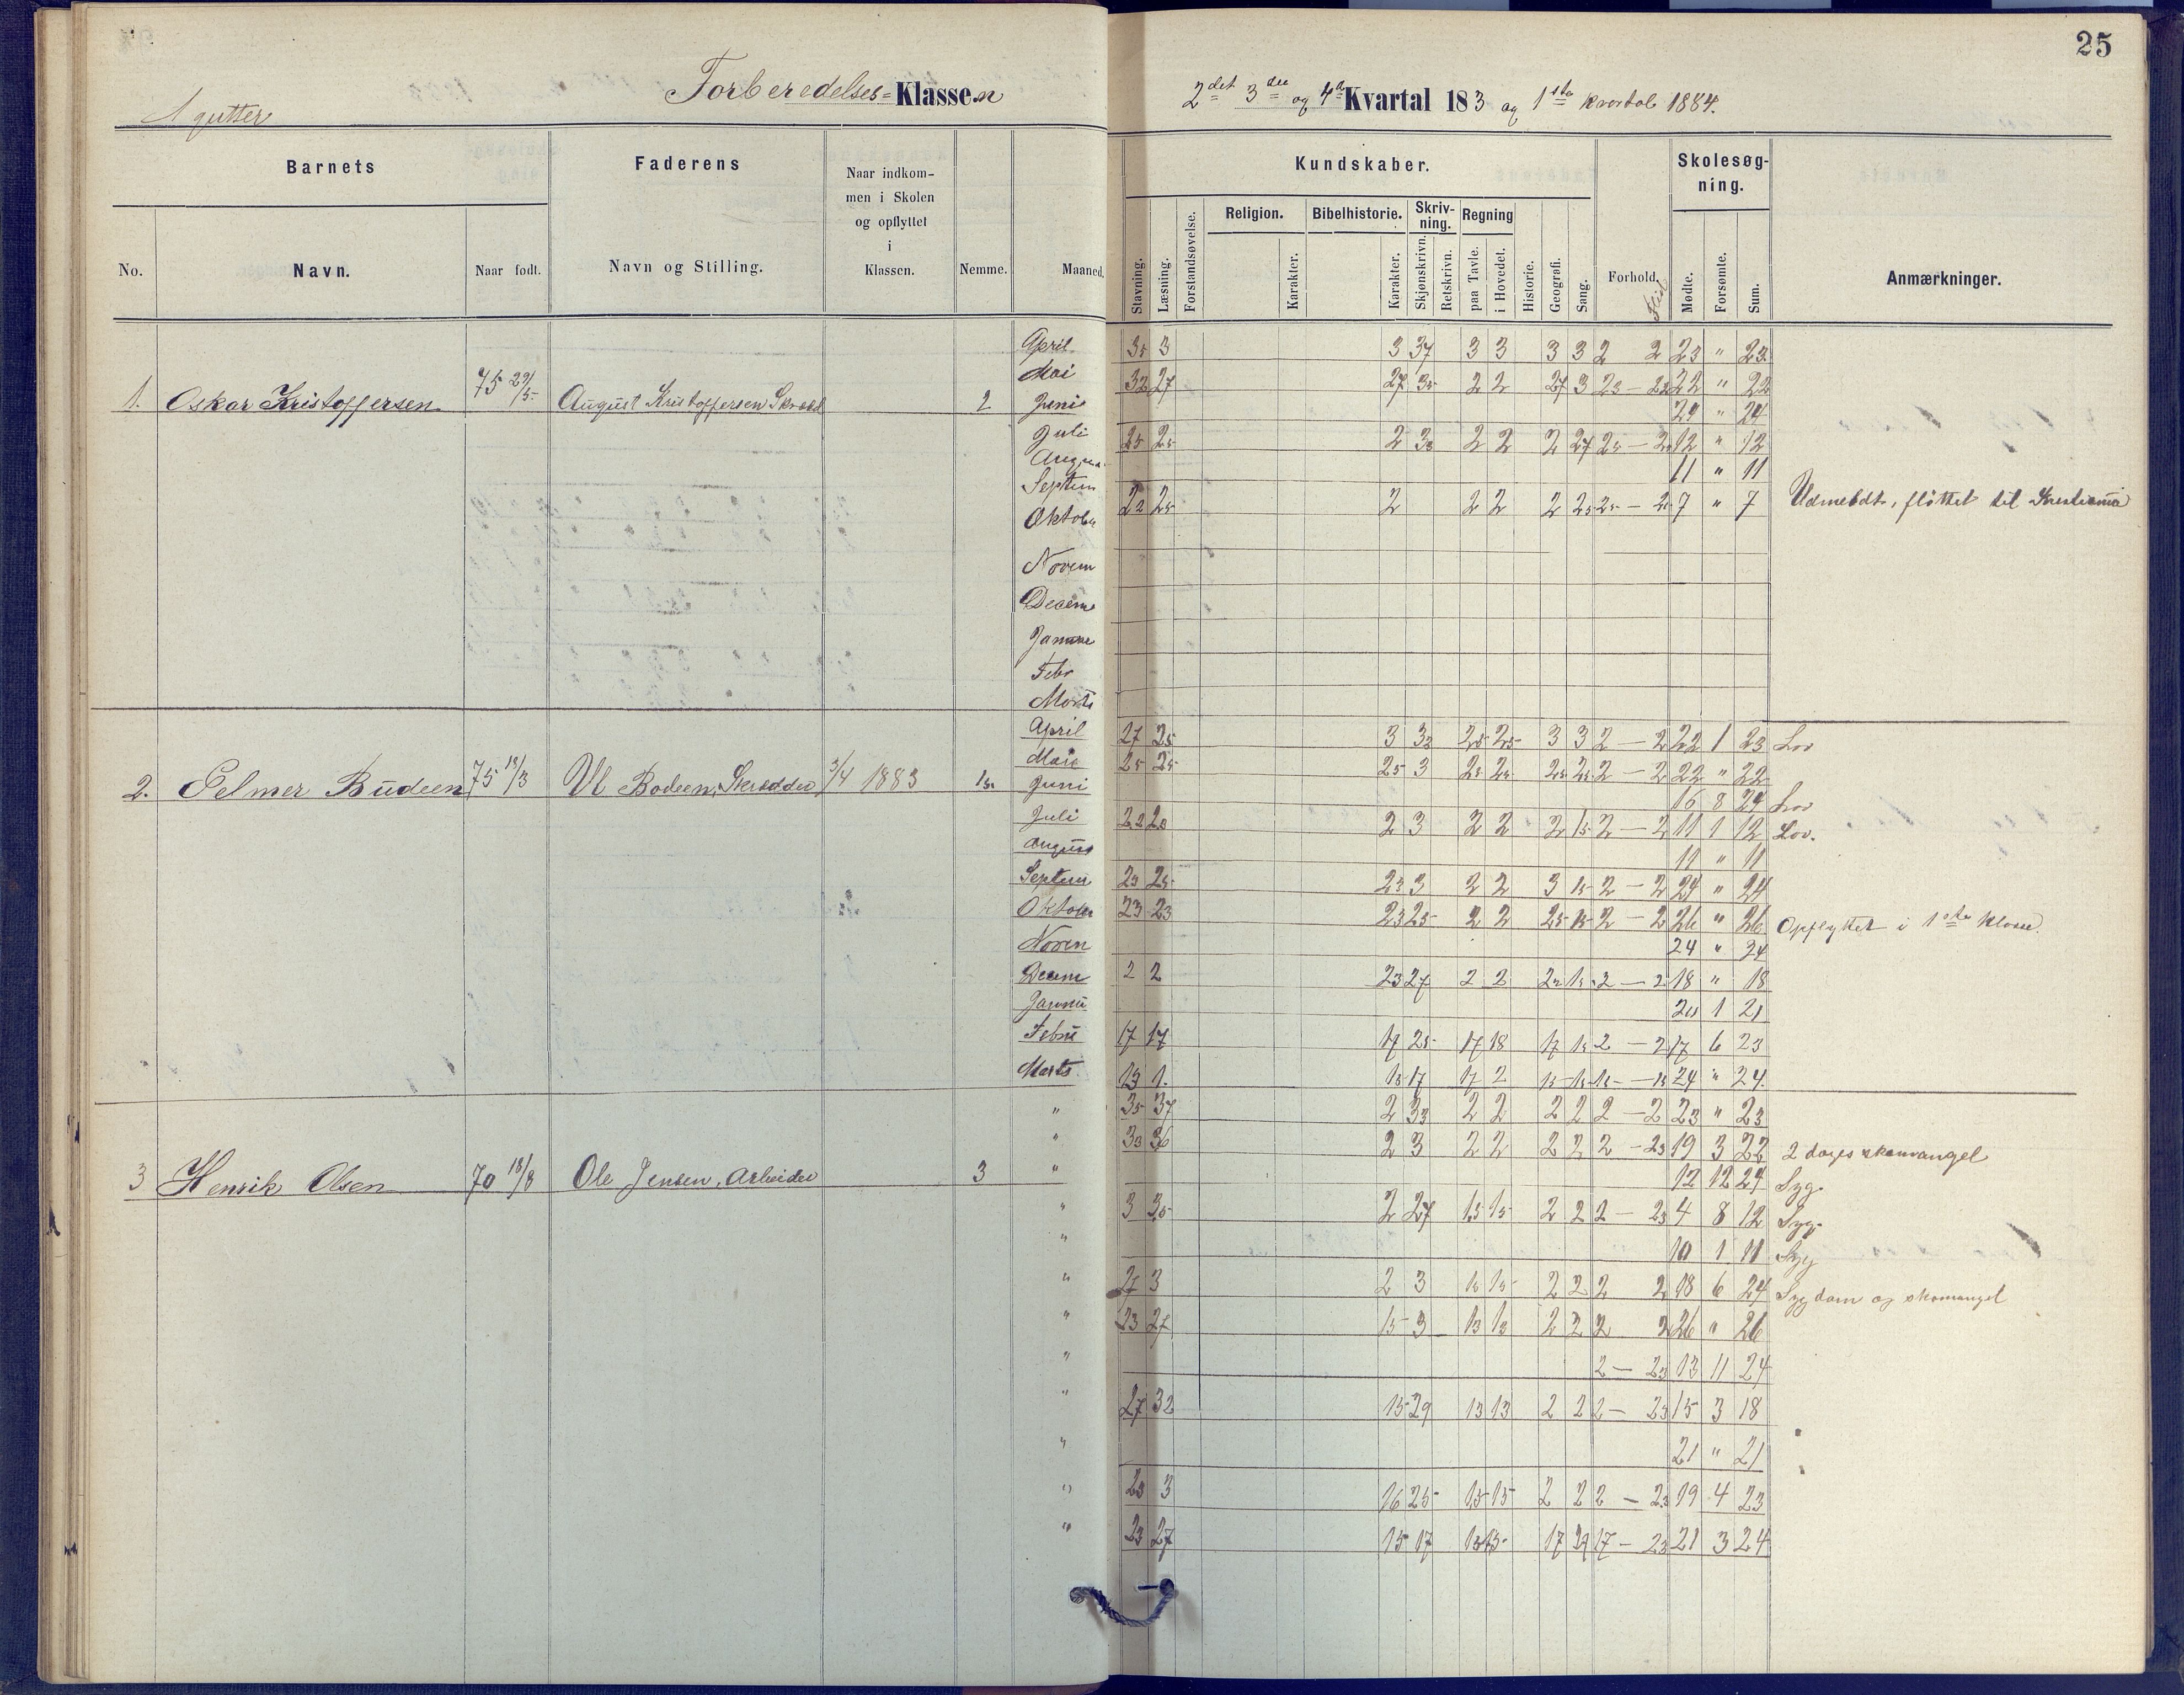 25
Forberedelses-Klassen
2det 3die og 4de Kvartal 183 og 1ste kvartal 1884.
1 gutter
Barnets
Faderens
Naar indkommen i Skolen og opflyttet i Klassen.
Nemme.
Maaned.
Kundskaber.
Forhold.
Flid
Skolesøgning.
Anmærkninger.
No.
Navn.
Naar født.
Navn og Stilling.
Stavning.
Læsning.
Forstandsøvelse.
Religion.
Karakter.
Bibelhistorie.
Karakter.
Skrivning.
Skjønskrivn.
Retskrivn.
Regning
paa Tavle.
i Hovedet.
Historie.
Geografi.
Sang.
Mødte.
Forsømte.
Sum.
1. Oskar Kristoffersen 75 29/5 August Kristoffersen 2
April 3 3 3 3 3 3 2 2 23 " 23
Mai 32 27 27 2 2 27 3 22 " 22
Juni 24 " 24
Juli 2 2 2 2 12 " 12
11 " 11
Septem
Oktober 22 2 2 2 2 7 " 7 Udmeldt, fløttet til Kristiania
Novem
Decem
Febr
Marts
2. Selmer 75 18/3 Skrædder 3/4 1883
April 27 25 3 3 3 2 – 2 22 1 23 Lov
25 3 2 – 2 22 " 22
Juni 16 8 24 Lov
Juli 2 3 2 2 2 2 – 2 11 1 12 Lov.
August 11 " 11
Septem 23 3 2 2 3 2 – 2 24 " 24
Oktober 23 23 23 25 2 2 2 – 2 26 " 26 Opflyttet i 1ste klasse.
Novem 24 " 24
Decem 2 2 23 27 2 2 2 – 2 18 " 18
20 1 21
17 17 17 25 17 18 17 2 – 2 17 6 23
Marts 1. 17 17 2 24 " 24.
" 35 37 2 33 2 2 2 2 2 – 2 23 " 23
" 36 2 3 2 2 2 2 2 – 23 19 3 22 2 dages skomangel
3 Henrik Olsen 70 18/8 Ole Jensen, Arbeider 3 " 12 12 24 Syg.
" 3 35 2 27 15 15 2 2 2 – 23 4 8 12 Syg.
" 10 1 11 Syg
" 27 3 2 3 15 15 2 2 2 2 18 6 24 Sygdom og skomangel
" 23 27 15 3 13 13 2 2 2 2 26 " 26
" 2 – 23 13 11 24
" 27 32 15 29 13 13 2 2 2 – 23 15 3 18
" 21 " 21
" 23 3 16 25 15 15 2 2 2 – 23 19 4 23
" 23 27 15 17 17 17 – 23 21 3 24